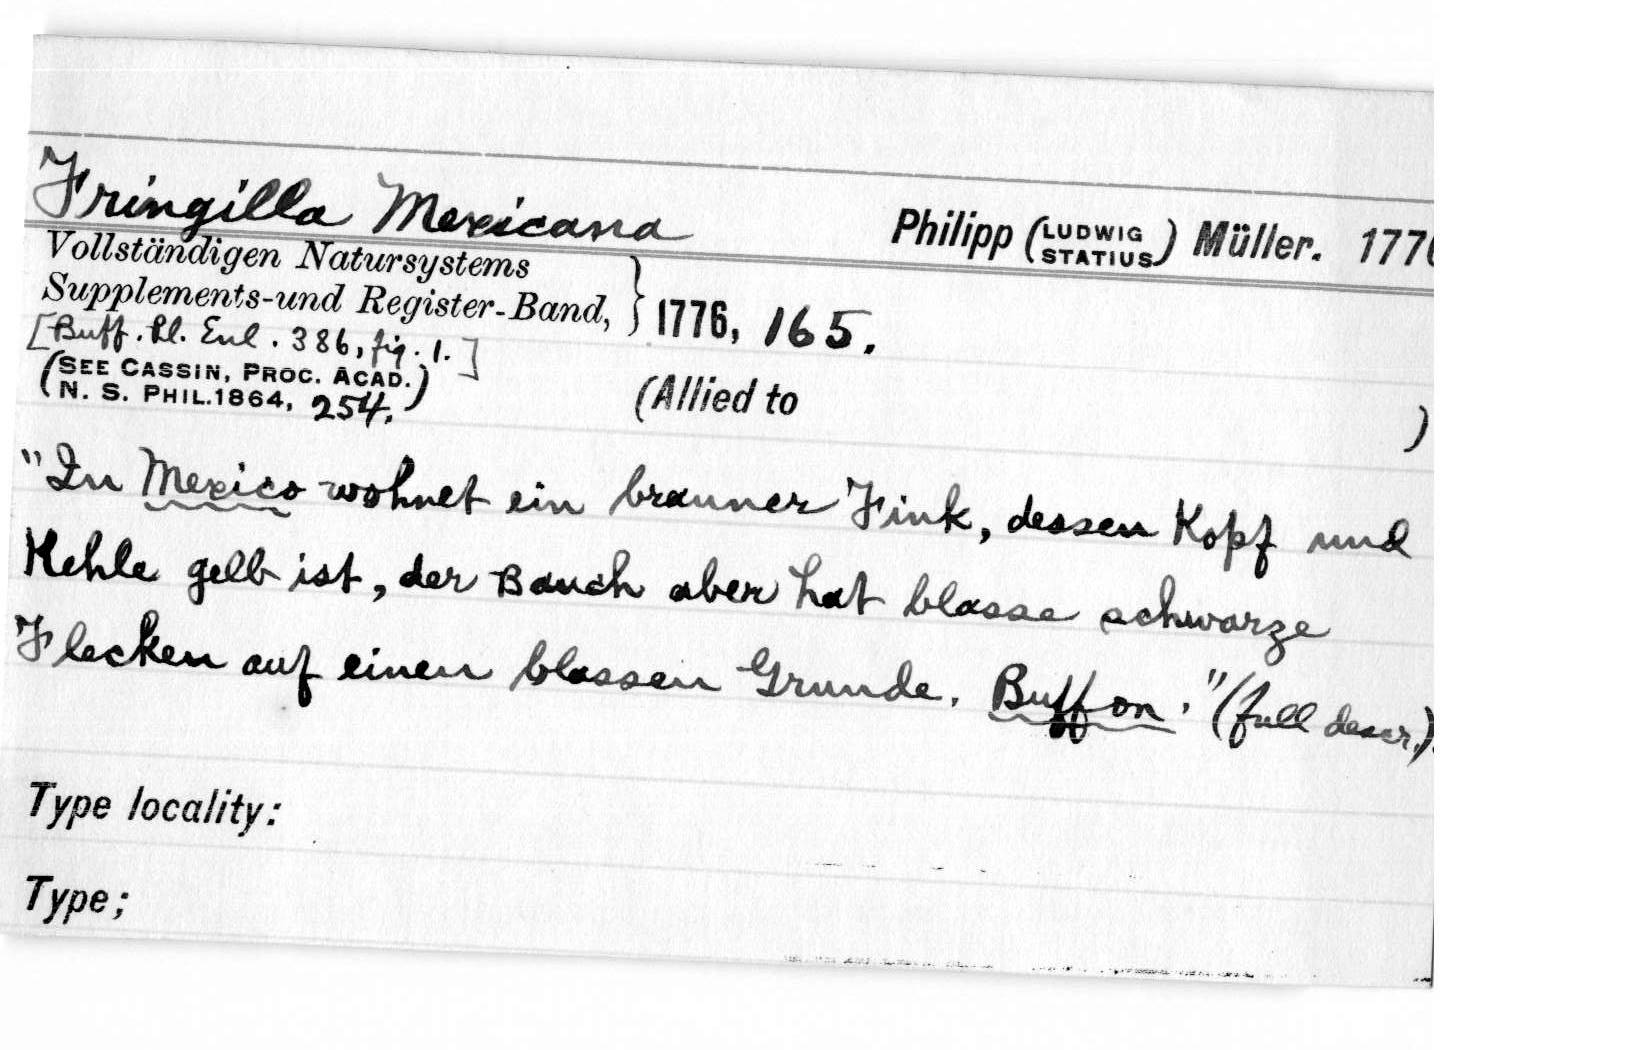 Fringilla Mexicana Philipp (LUDWIG STATIUS) Müller. 1776
Vollständigen Natursystems
Supplements-und Register-Band, } 1776, 165.
[Buff. Pl. Enl. 386, fig. 1.]
(SEE CASSIN, PROC. ACAD.
N. S. PHIL. 1864, 254.)
(Allied to )
"In Mexico wohnet ein brauner Fink, dessen Kopf und
Kehle gelb ist, der Bauch aber hat blasse schwarze
Flecken auf einen blassen Grunde. Buffon." (full descr.).
Type locality:
Type;